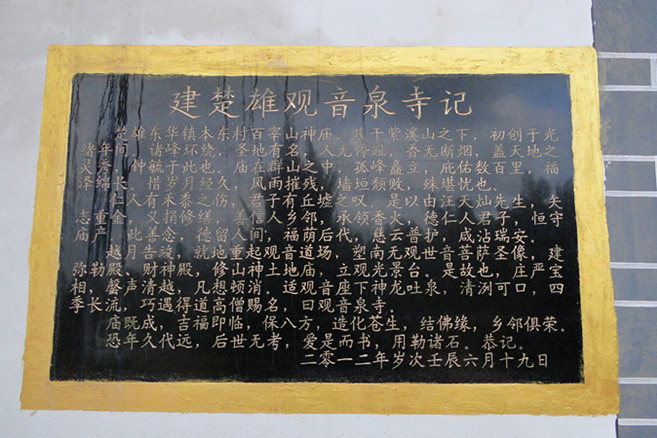 建楚雄观音泉寺记
楚雄东华镇本东村百宰山神庙，建于紫溪山之下，初创于光
绪年间，诸峰环绕，圣地有名，人无停踪，香无断烟，盖天地之
灵秀，钟毓于此也。庙在群山之中，孤峰矗立，庇佑数百里，福
泽绵长。惜岁月经久，风雨摧残，墙垣颓败，殊堪忧也。
仁人有禾黍之伤，君子有丘墟之叹。是以由汪天灿先生，矢
志重金，义捐修缮，善信人乡邻，承领香火，德仁人君子，恒守
庙产，此善念，德留人间，福荫后代，慈云普护，咸沾瑞安。
越月告竣，就地重起观音道场，塑南无观世音菩萨圣像，建
弥勒殿、财神殿，修山神土地庙，立观光景台。是故也，庄严宝
相，磬声清越，凡想顿消。适观音座下神龙吐泉，清洌可口，四
季长流，巧遇得道高僧赐名，曰观音泉寺。
庙既成，吉福即临，保八方，造化苍生，结佛缘，乡邻俱荣。
恐年久代远，后世无考，爰是而书，用勒诸石。恭记。
二零一二年岁次壬辰六月十九日